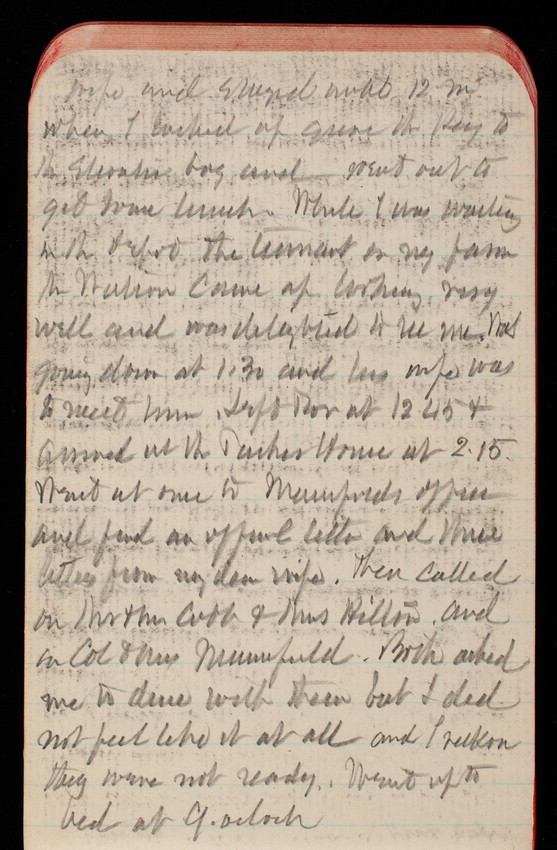 wife and stayed until 12 m
when I locked up gave the Key to
the Elevator boy and went out to
get some lunch. While I was waiting
in the Depot, the tenant on my farm
Mr Watson Came up looking very
well and was delighted to see me. Was
going down at 1:30 and his wife was
to meet him. Left Nor at 12 45 &
arrived at the Parker House at 2.15.
Went at once to Mumfords office
and find an official letter and three
letters from my dear wife. Then called
on Mrs Cobb & Mrs Hilton. and
on Col & Mrs Mumfield. Both asked
me to dine with them but I did
not feel like it at all and I reckon
they were not ready. Went up to
bed at 9. oclock